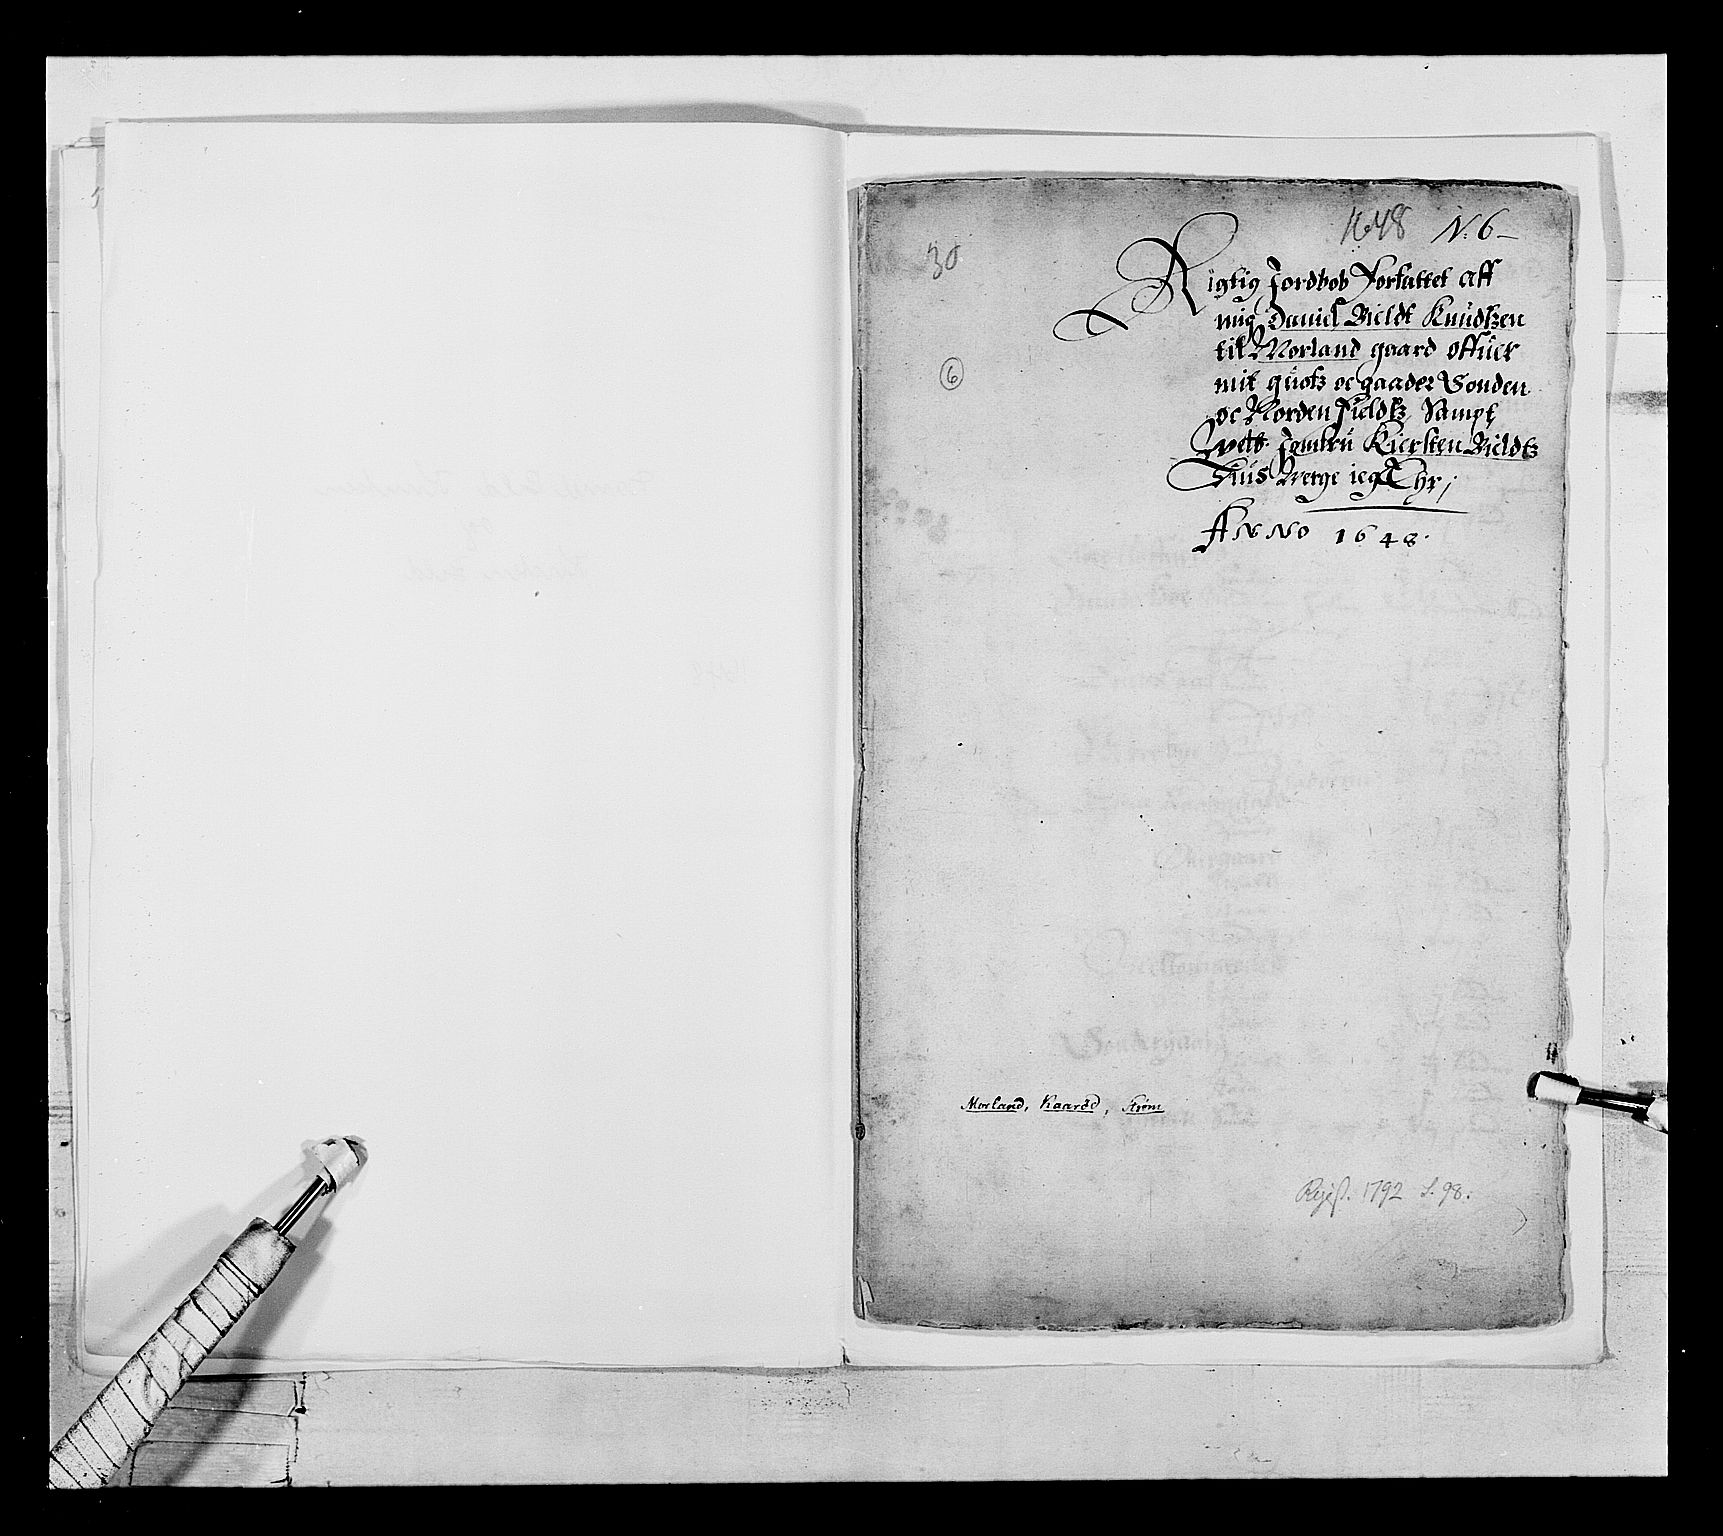 1648 N. 6
30
Rigtig Jordbob Forfattet Aff
mig Daniel Bieldt Knudtzen
til Morland gaard offuer
mit guotz oc gaader Sønden
oc Norden Fieldtz, Sampt
Welb. Jomfru Kiersten Bieldtz
Huis Werge ieg Ehr,
6
ANNO 1648.
Morland, Kaarød, Strøm
Regist. 1792 S. 98.